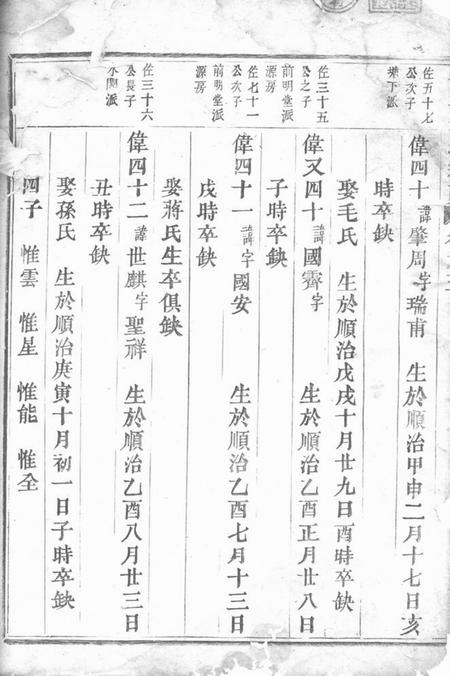 佐五十七
公次子
墈下派
偉四十諱肇周字瑞甫 生於順治甲申二月十七日亥
時卒缺
娶毛氏 生於順治戊戌十月廿九日酉時卒缺
佐三十五
公之子
前明堂派
源房
偉又四十諱國霽字 生於順治乙酉正月廿八日
子時卒缺
佐七十一
公次子
前明堂派
源房
偉四十一諱字國安 生於順治乙酉七月十三日
戌時卒缺
娶蔣氏生卒俱缺
佐三十六
公長子
水閣派
偉四十二諱世麒字聖祥 生於順治乙酉八月廿三日
丑時卒缺
娶孫氏 生於順治庚寅十月初一日子時卒缺
四子 惟雲 惟星 惟能 惟全